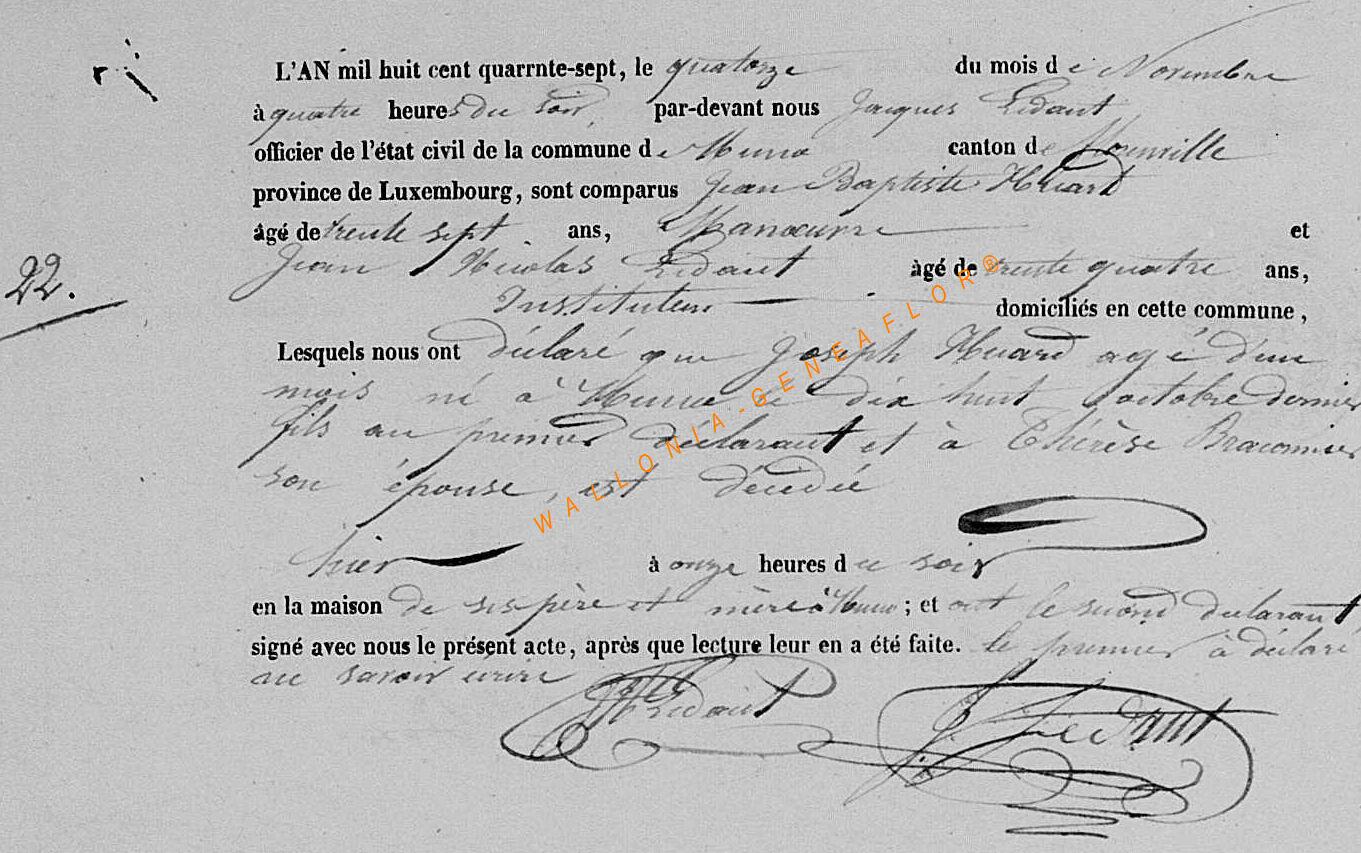 L'AN mil huit cent quarrnte-sept, le quatorze du mois de Novembre
à quatre heures du soir, par-devant nous Jacques Lédant
officier de l'état civil de la commune de Muno canton de
province de Luxembourg, sont comparus Jean Baptiste Huard
âgé de trente sept ans, Manœuvre et
Jean Nicolas Lédant âgé de trente quatre ans,
Instituteur domiciliés en cette commune,
22.
Lesquels nous ont déclaré que Joseph Huard agé d'un
mois né à Muno le dix huit octobre dernier
fils au premier déclarant et à Thérèse Braconnier
son épouse, est décédé
hier à onze heures du soir
en la maison de ses père et mère à Muno; et ont le second déclarant
signé avec nous le présent acte, après que lecture leur en a été faite. le premier à déclaré
ne savoir écrire
Lédant J. Lédant
WALLONIA-GENEAFLOR®